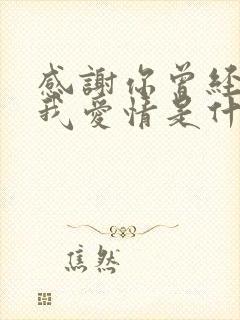 感謝你曾経
我愛情是什
焦然